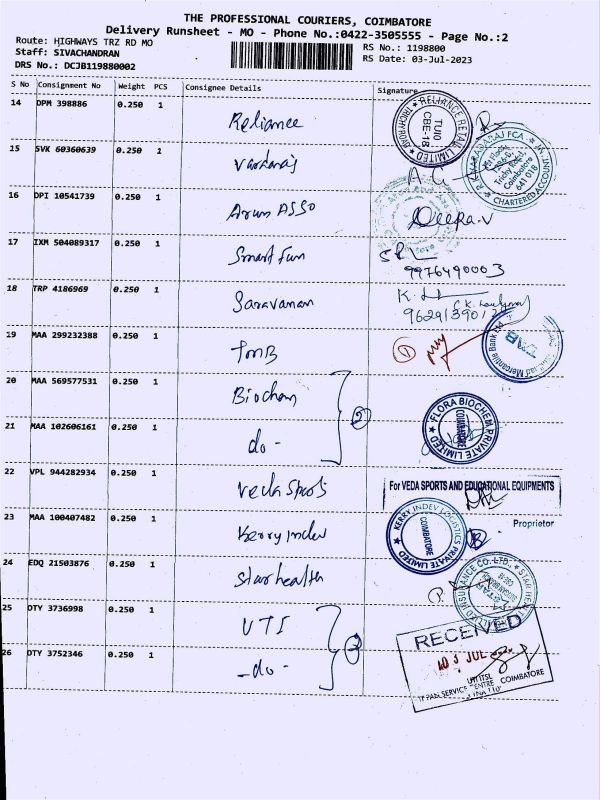 THE PROFESSIONAL COURIERS, COIMBATORE
Delivery Runsheet - MO - Phone No.:0422-3505555 - Page No.:2
Route: HIGHWAYS TRZ RD MO
RS No.: 1198800
Staff: SIVACHANDRAN
RS Date: 03-Jul-2023
DRS No.: DCJB119880002
S No Consignment No Weight PCS Consignee Details Signature
14 DPM 398886 0.250 1 Reliance
RELIANCE RETAIL LIMITED
TUJO
CBE-18
15 SVK 60360639 0.250 1
CHARTERED ACCOUNTANT
Trichy Road
Coimbatore
641 018
16 DPI 10541739 0.250 1 Arun ASSO Deepa.V
17 IXM 504089317 0.250 1 Smart Fun
9976490003
18 TRP 4186969 0.250 1 Saravanan
19 MAA 299232388 0.250 1 TMB
Mercantile Bank Ltd
TMB
20 MAA 569577531 0.250 1 Biochem
2
FLORA BIOCHEM PRIVATE LIMITED
COIMBATORE
21 MAA 102606161 0.250 1 do -
22 VPL 944282934 0.250 1 Veda Sports
For VEDA SPORTS AND EDUCATIONAL EQUIPMENTS
Proprietor
23 MAA 100407482 0.250 1 Kerry Indev
KERRY INDEV LOGISTICS PRIVATE LIMITED
COIMBATORE
24 EDQ 21503876 0.250 1 Star health
STAR HEALTH
INSURANCE CO. LTD.
25 DTY 3736998 0.250 1 UTI
2
RECEIVED
03 JUL
26 DTY 3752346 0.250 1 - do -
UTIITSL
PAN SERVICE CENTRE
COIMBATORE